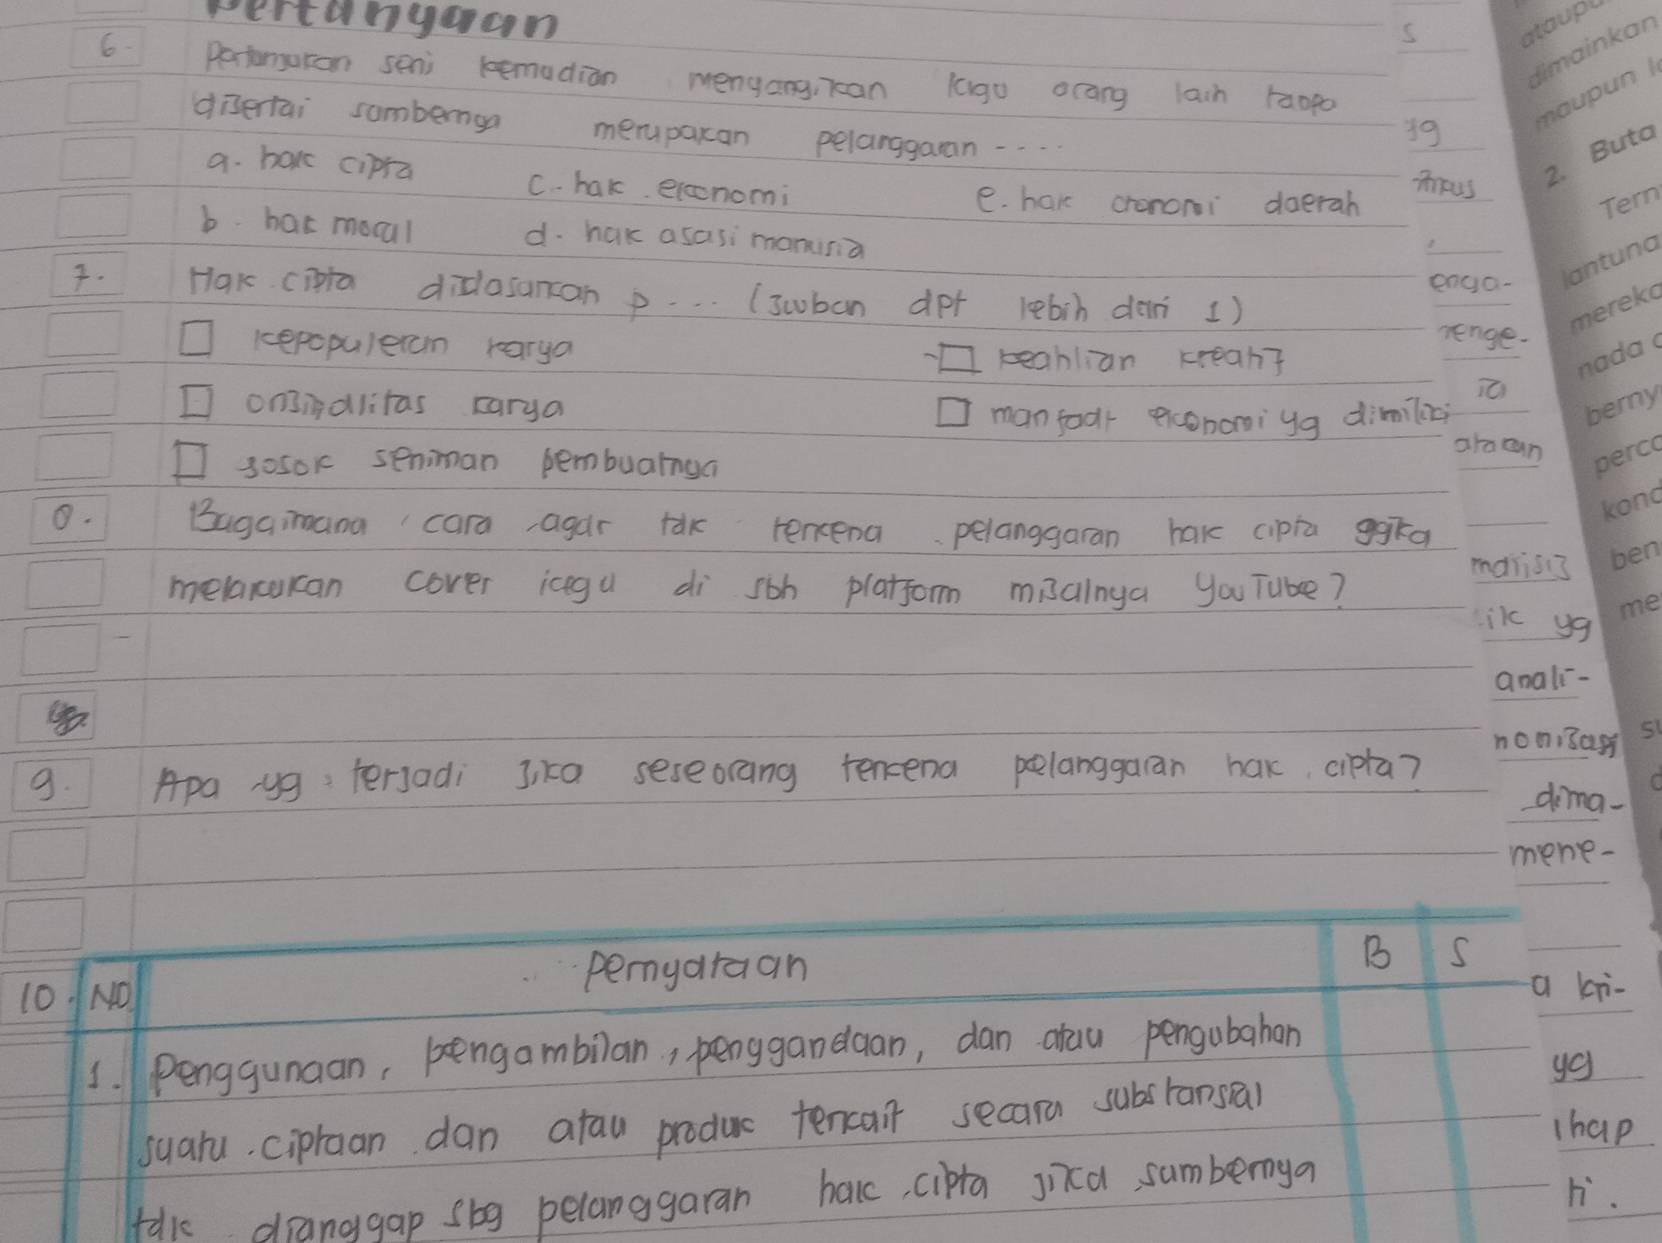 Pertanyaan
6. Pertunjukan seni kemudian menyanyikan lagu orang lain tanpa
disertai sumbernya merupakan pelanggaran ....
a. hak cipta c. hak ekonomi e. hak ekonomi daerah
b. hak moral d. hak asasi manusia
7. Hak cipta didasarkan p .... (jwban dpt lebih dari 1)
kepopuleran karya keahlian kreatif
orisinalitas karya manfaat ekonomi yg dimiliki
sosok seniman pembuatnya
8. Bagaimana cara agar tdk terkena pelanggaran hak cipta
melakukan cover lagu di sbh platform misalnya YouTube?
9. Apa yg terjadi jika seseorang terkena pelanggaran hak cipta?
10. NO Pernyataan B S
1. Penggunaan, pengambilan, penggandaan, dan atau pengubahan
suatu ciptaan dan atau produk terkait secara substansial
tdk dianggap sbg pelanggaran hak cipta jika sumbernya
s
yg
enga-
renge-
ia
atakan
ik yg
anali-
dima-
mene-
a kri-
yg
ihap
ri.
ataupu
dimainkan
maupun l
2. Buta
Tern
lantuna
mereka
nada
berny
perca
kond
ben
me